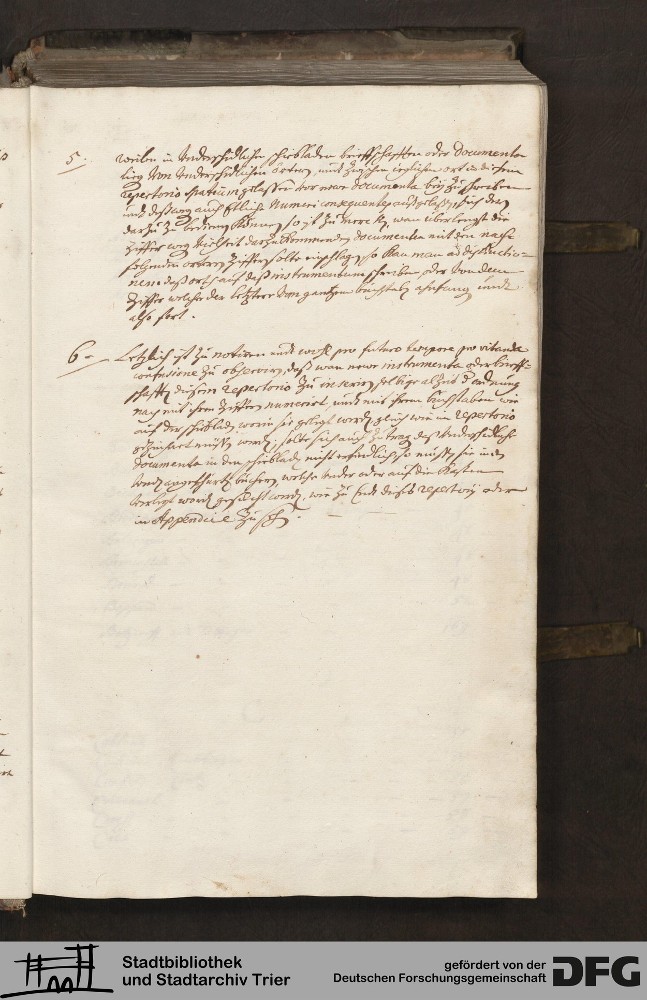 5. weilen in underschidlichen schiebladen brieffschafften oder documenta
ligen von underschidlichen örtern, und zwischen iedlichen ort in diesem
repertorio spatium gelassen vor newe documenta bey zu schreiben
und deßweg auch etliche Numeri consequenter außgelaßen, sich deren
darzu zu bedienen können, so ist zu mercken, wan über lengst die
Ziffer weg vielheit der zukommenden documenten mit den nach
folgenden örtern Ziffer solte einschlagen, so kan man ad distinctio-
nem deß orths auff deß instrumentum schreiben oder von dem
Ziffer welcher der letztere vom gantzen buchstab anfang und
also fort.
6. Letzlich ist zu notiren und wohl pro futuro tempore pro vitanda
confusione zu observiren, daß wan newe instrumenta oder brieff-
schafften diesem repertorio zu inseriren, selbige alzeit der ordnung
nach mit ihren Ziffern numerirt, und mit ihrem buchstaben wie
auff der schieblad worin sie gelegt werden gleich wie in repertorio
gezeichnet müßen werden; solte sich auch zutragen daß underschidliche
documenta in den schiebladen nicht erfindlich so müßen sie in den
büchern, welche under oder auff die Kasten
verlegt worden gesucht werden, wie zu End dieses repertorij oder
in Appendice zu sehen.
Stadtbibliothek
und Stadtarchiv Trier
gefördert von der
Deutschen Forschungsgemeinschaft
DFG